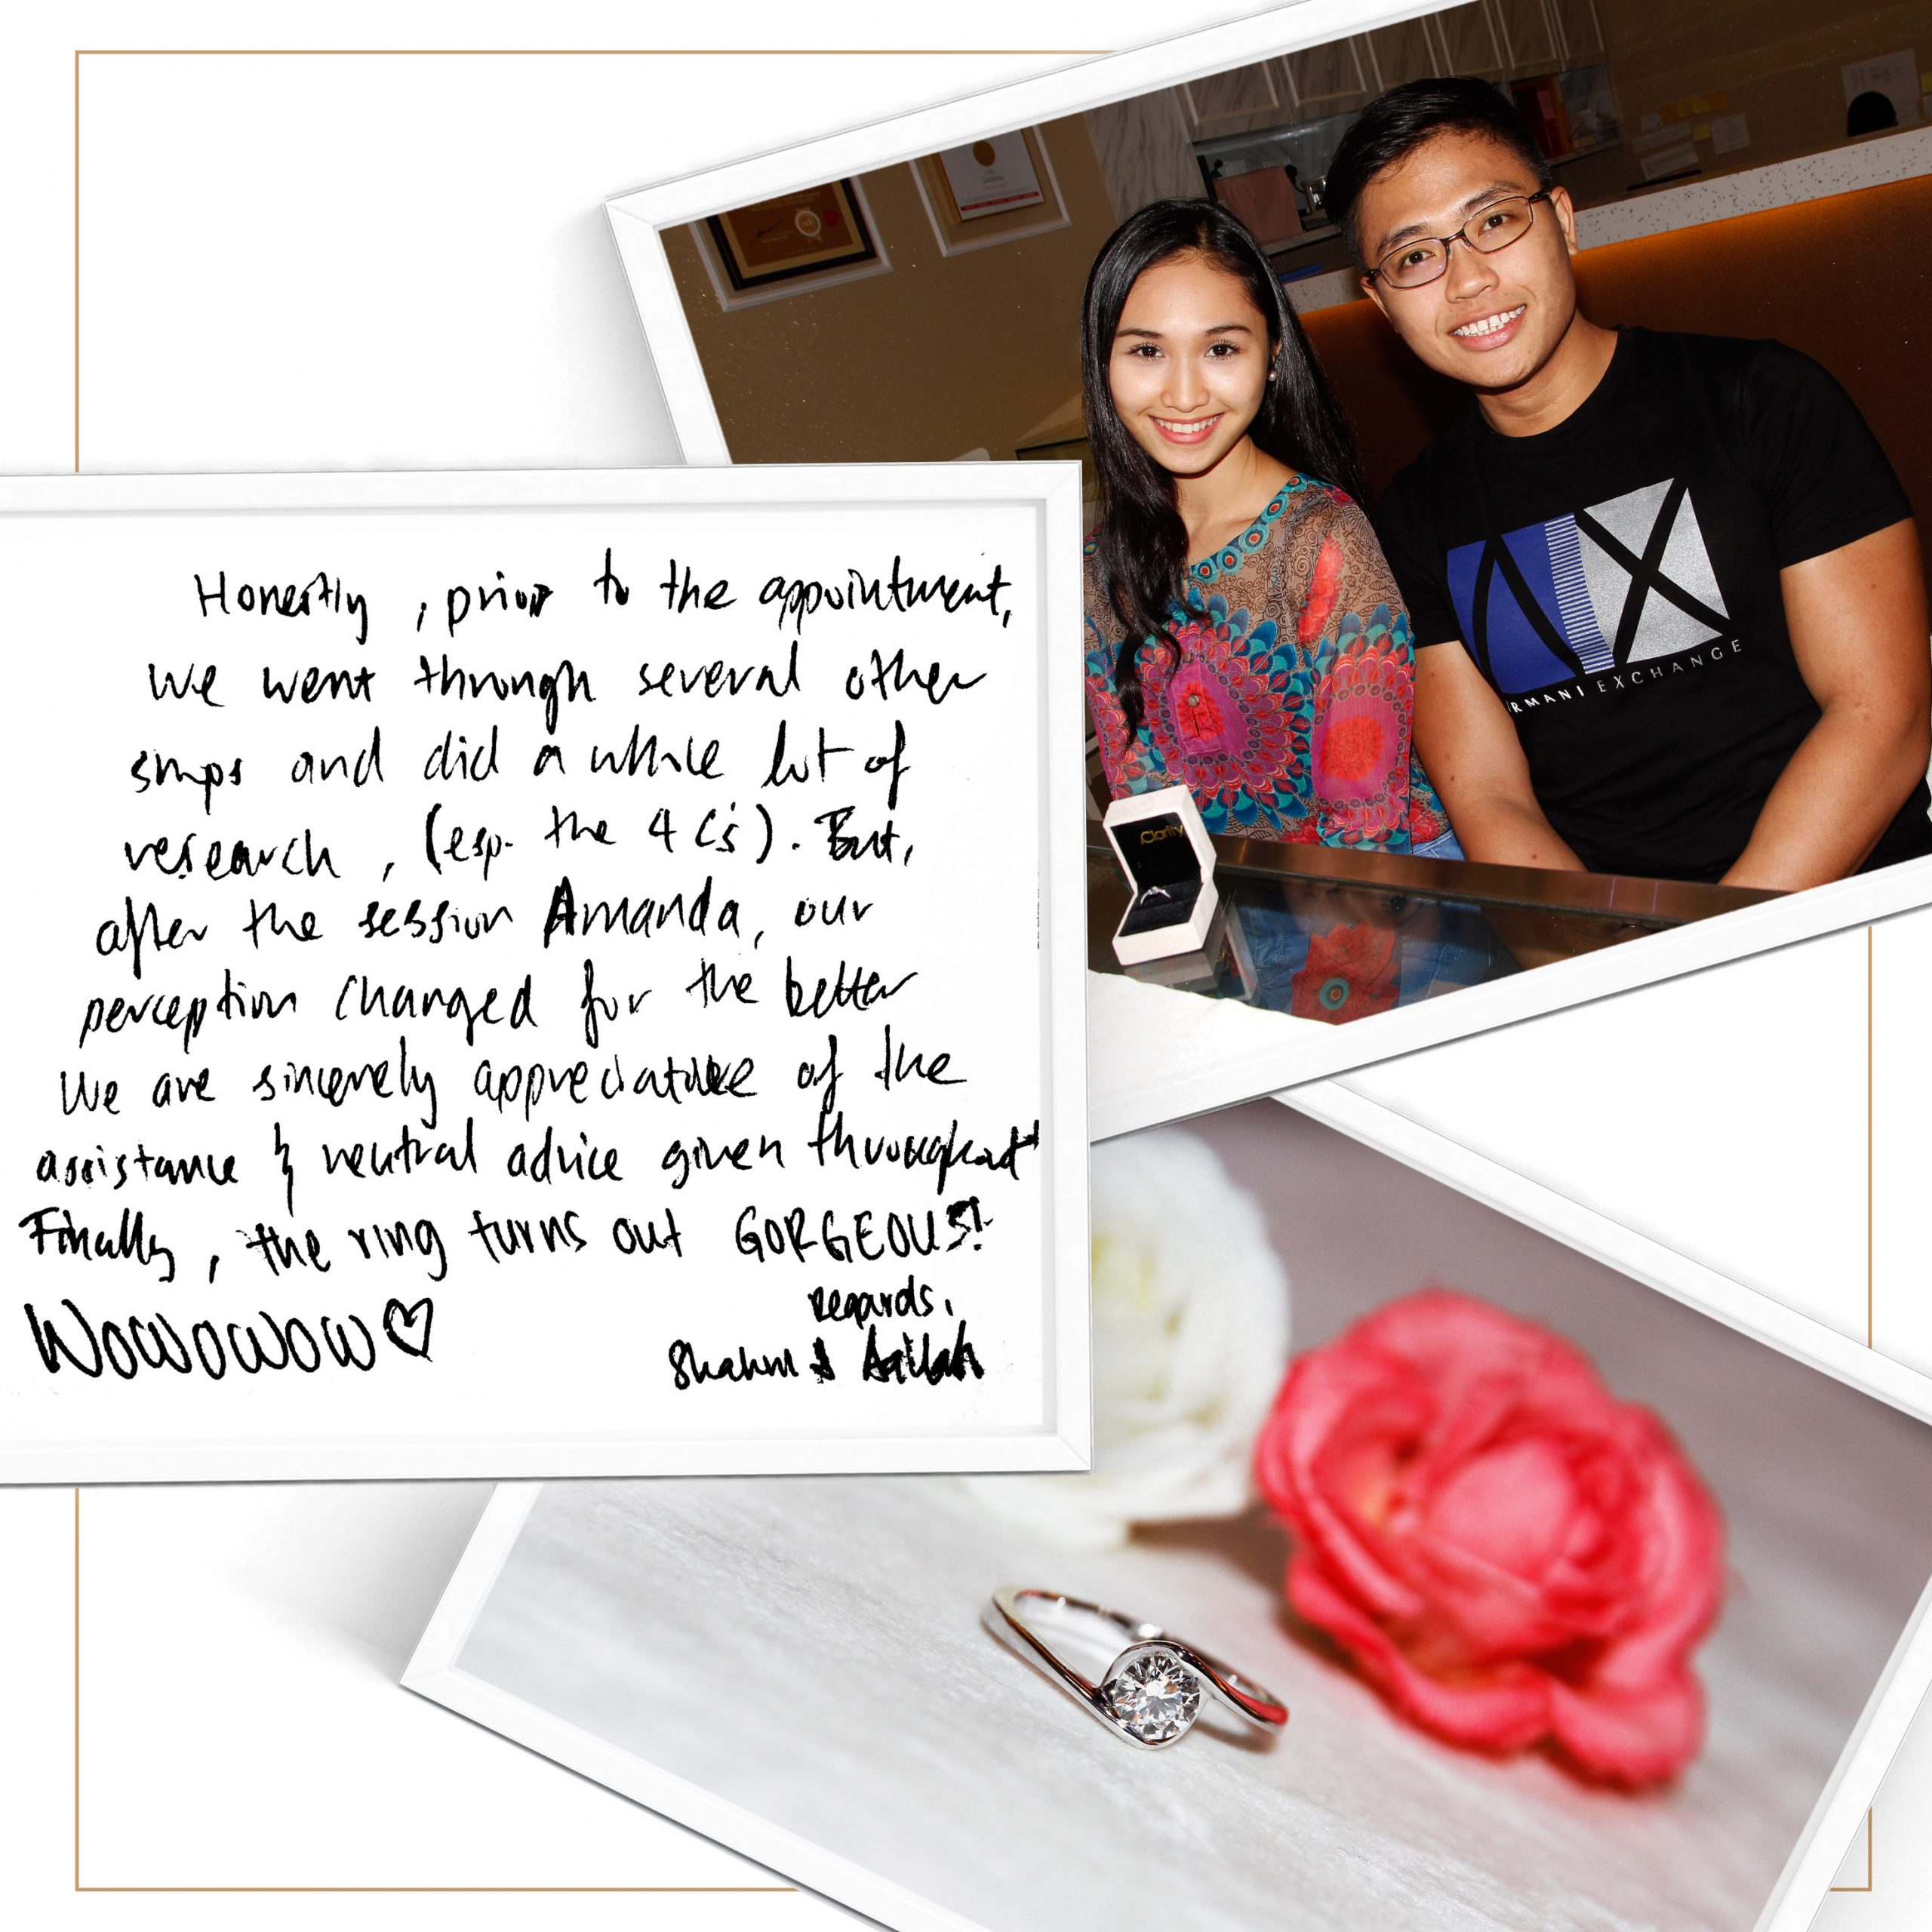 Honestly, prior to the appointment,
we went through several other
shops and did a whole lot of
research, (esp. the 4 C's). But,
after the session Amanda, our
perception changed for the better
We are sincerely appreciative of the
assistance & neutral advice given throughout
Finally, the ring turns out GORGEOUS!
WOWOWOWOW♡
regards,
&
Clarity
AX
ARMANI EXCHANGE